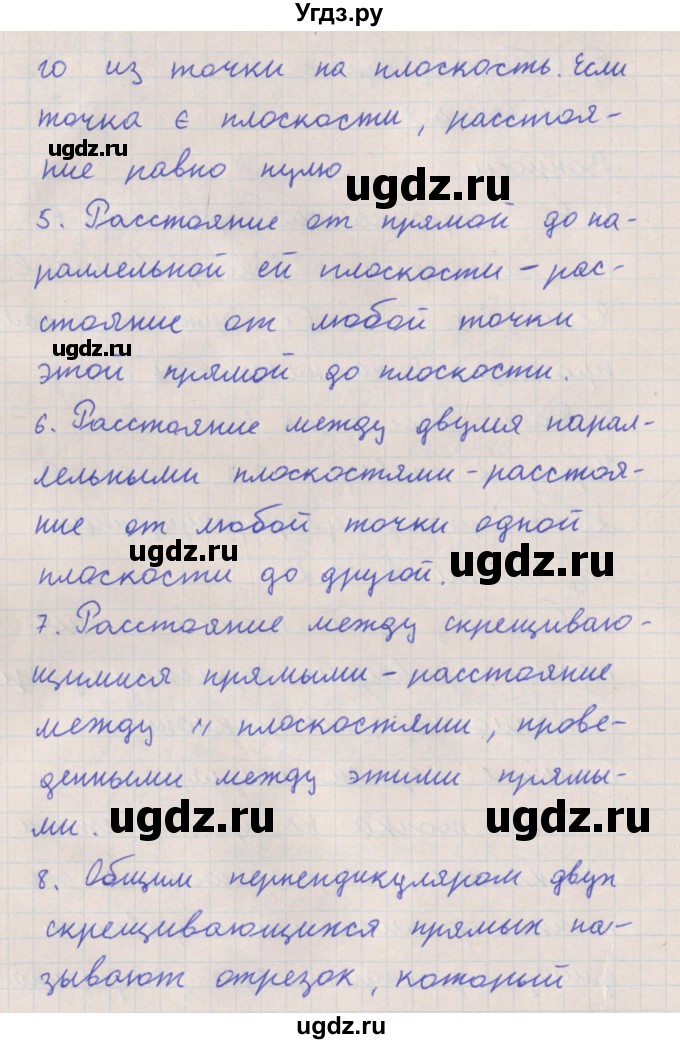 Угдз.ру
го из точки на плоскость. Если
точка ∈ плоскости, расстоя-
ugdz.ru
ние равно нулю
ugdz.ru
5. Расстояние от прямой до па-
раллельной ей плоскости - рас-
стояние от любой точки
ugdz.ru
этой прямой до плоскости.
6. Расстояние между двумя парал-
лельными плоскостями - расстоя-
ние от любой точки одной
ugdz.ru
ugdz.ru
плоскости до другой.
7. Расстояние между скрещиваю-
щимися прямыми - расстояние
между || плоскостями, прове-
денными между этими прямы-
ugdz.ru
ugdz.ru
ми.
8. Общим перпендикуляром двух
скрещивающихся прямых на-
зывают отрезок, который
ugdz.ru